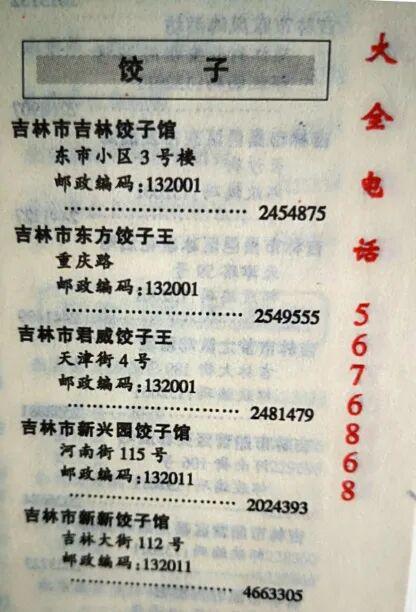 饺 子
吉林市吉林饺子馆
东市小区3号楼
邮政编码:132001
························ 2454875
吉林市东方饺子王
重庆路
邮政编码:132001
························ 2549555
吉林市君威饺子王
天津街4号
邮政编码:132001
························ 2481479
吉林市新兴园饺子馆
河南街115号
邮政编码:132011
························ 2024393
吉林市新新饺子馆
吉林大街112号
邮政编码:132011
························ 4663305
大全电话 5676868